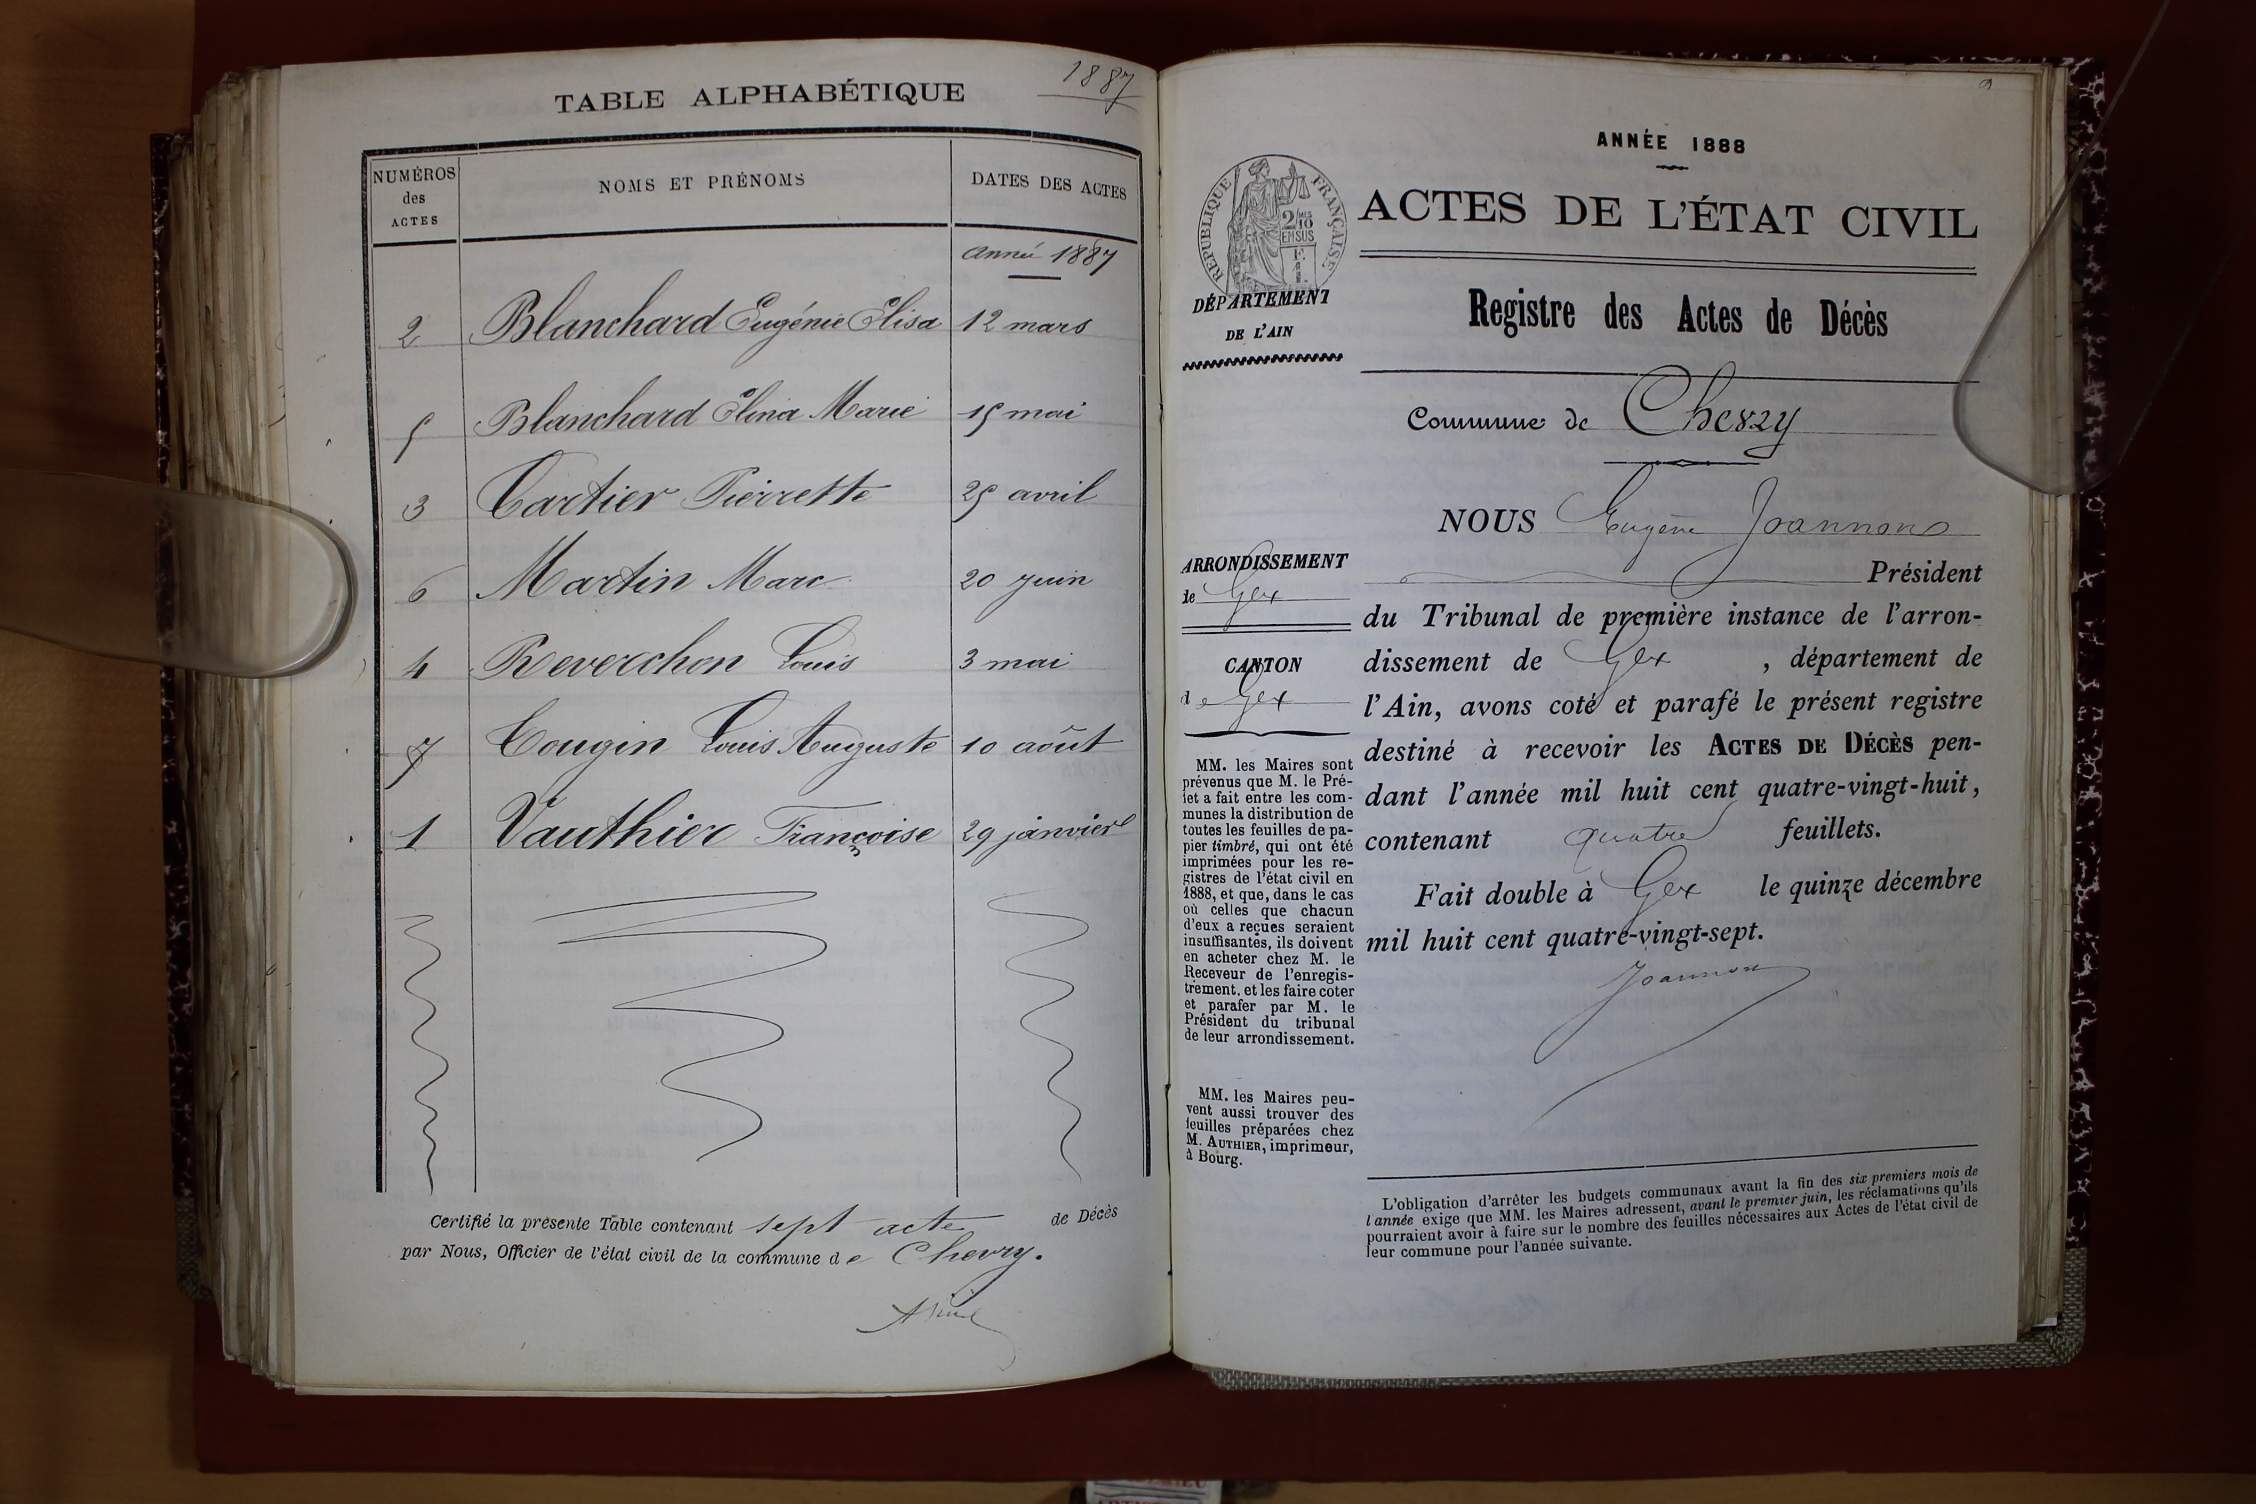 1887
TABLE ALPHABÉTIQUE
NUMÉROS
des
ACTES
NOMS ET PRÉNOMS
DATES DES ACTES
Année 1887
2 Blanchard Eugénie Élisa 12 mars
5 Blanchard Élina Marie 15 mai
3 Cartier Pierrette 25 avril
6 Martin Marc 20 juin
4 Reverchon Louis 3 mai
7 Tougin Louis Auguste 10 août
1 Vauthier Françoise 29 janvier
Certifié la présente Table contenant sept acte de Décès
par Nous, Officier de l'état civil de la commune de Chevry.
ANNÉE 1888
RÉPUBLIQUE FRANÇAISE
2/10 MES
EN SUS
F.
1.
ACTES DE L'ÉTAT CIVIL
DÉPARTEMENT
DE L'AIN
Registre des Actes de Décès
Commune de Chevry
ARRONDISSEMENT
de Gex
CANTON
de Gex
MM. les Maires sont
prévenus que M. le Pré-
fet a fait entre les com-
munes la distribution de
toutes les feuilles de pa-
pier timbré, qui ont été
imprimées pour les re-
gistres de l'état civil en
1888, et que, dans le cas
où celles que chacun
d'eux a reçues seraient
insuffisantes, ils doivent
en acheter chez M. le
Receveur de l'enregis-
trement, et les faire coter
et parafer par M. le
Président du tribunal
de leur arrondissement.
MM. les Maires peu-
vent aussi trouver des
feuilles préparées chez
M. AUTHIER, imprimeur,
à Bourg.
NOUS Eugène Joannon
Président
du Tribunal de première instance de l'arron-
dissement de Gex, département de
l'Ain, avons coté et parafé le présent registre
destiné à recevoir les ACTES DE DÉCÈS pen-
dant l'année mil huit cent quatre-vingt-huit,
contenant quatre feuillets.
Fait double à Gex le quinze décembre
mil huit cent quatre-vingt-sept.
Joannon
L'obligation d'arrêter les budgets communaux avant la fin des six premiers mois de
l'année exige que MM. les Maires adressent, avant le premier juin, les réclamations qu'ils
pourraient avoir à faire sur le nombre des feuilles nécessaires aux Actes de l'état civil de
leur commune pour l'année suivante.